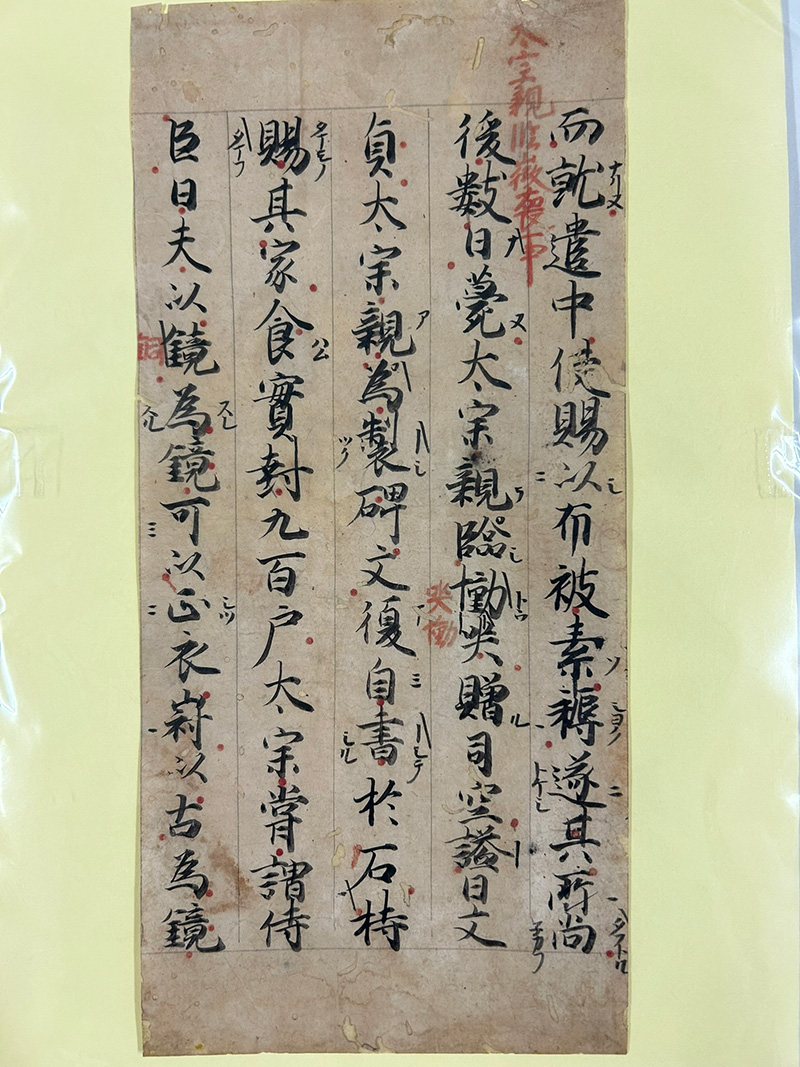 而就遣中使賜以布被素褥遂其所尚
後數日薨太宗親臨慟哭贈司空謚曰文
貞太宗親為製碑文復自書於石特
賜其家食實封九百户太宗嘗謂侍
臣曰夫以鏡為鏡可以正衣冠以古為鏡
太宗親臨徵喪事
哭慟
銅